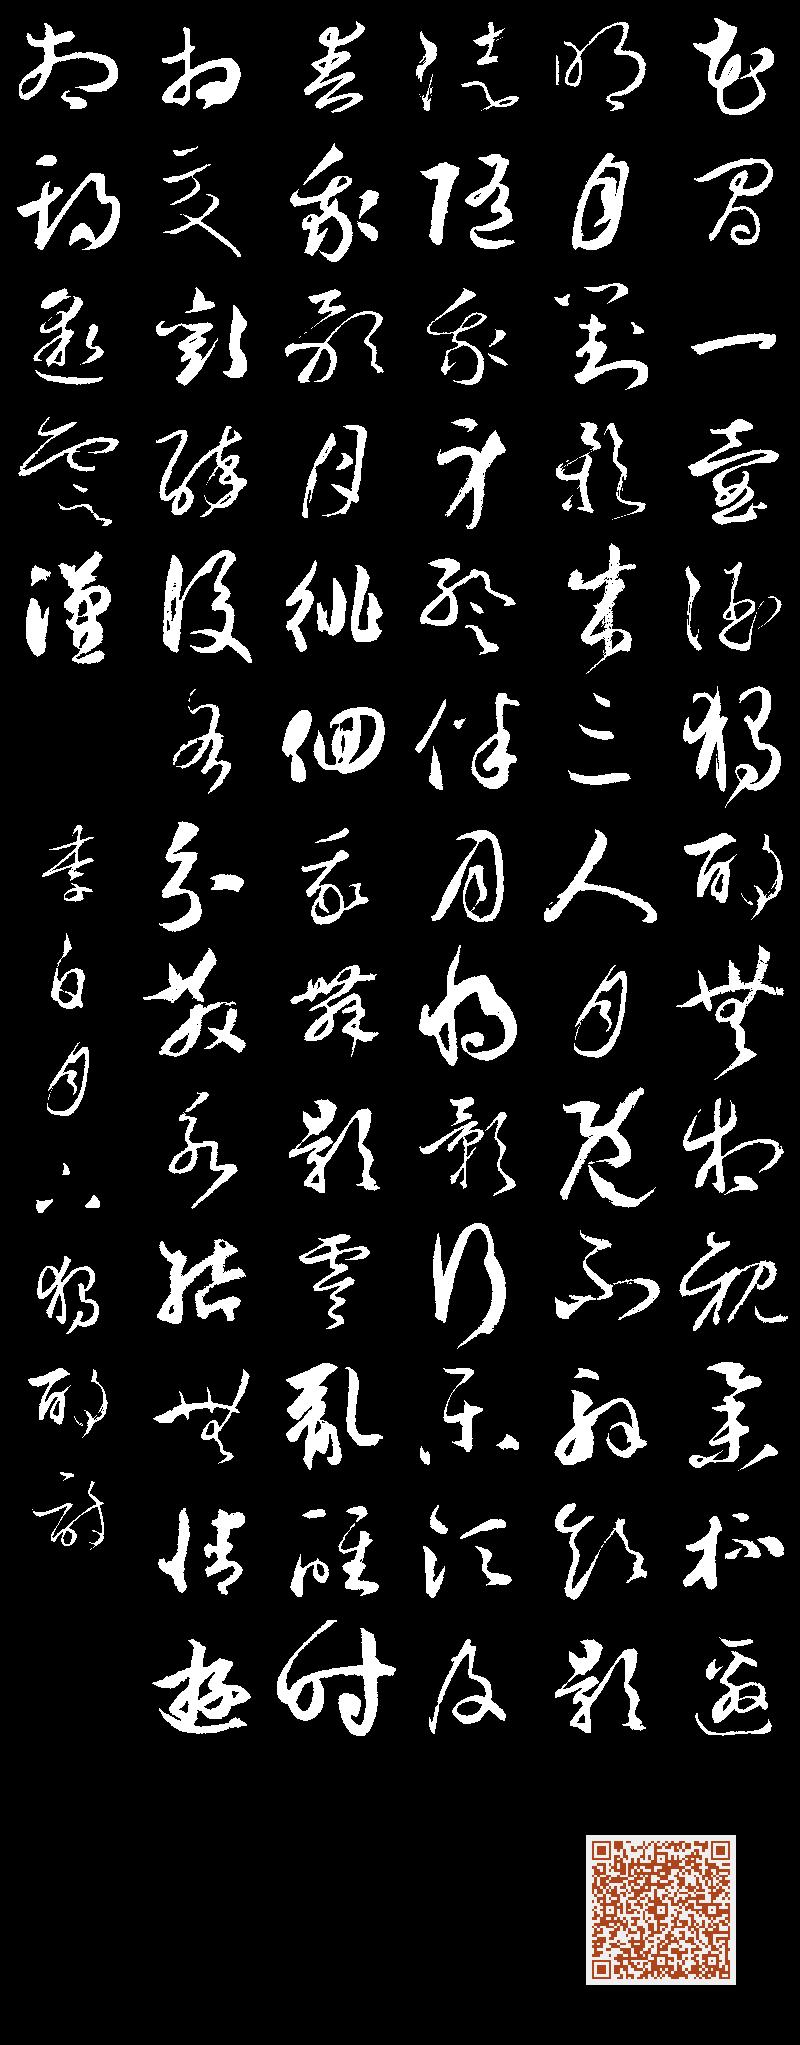 花間一壺酒獨酌無相親舉杯邀
明月對影成三人月既不解飲影
徒隨我身暫伴月將影行樂須及
春我歌月徘徊我舞影零亂醒時
相交歡醉後各分散永結無情遊
相期邈雲漢 李白月下獨酌詩